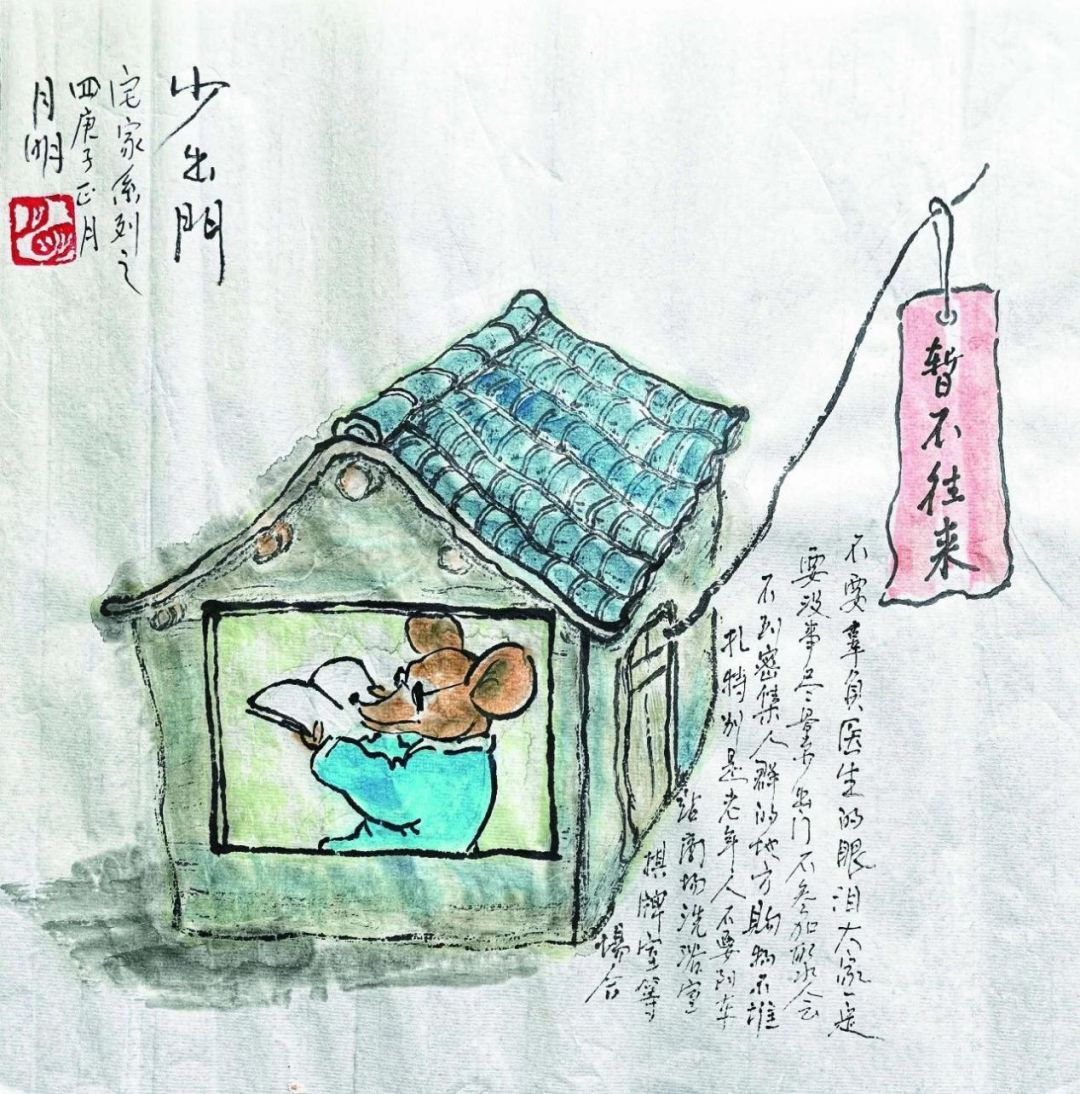 暂不往来
不要辜负医生的眼泪大家一定
要没事尽量少出门不参加聚会
不到密集人群的地方购物不堆
扎特别是老年人不要到车
站商场洗浴室
棋牌室等
場合
少出門
宅家系列之
四庚子正月
月明